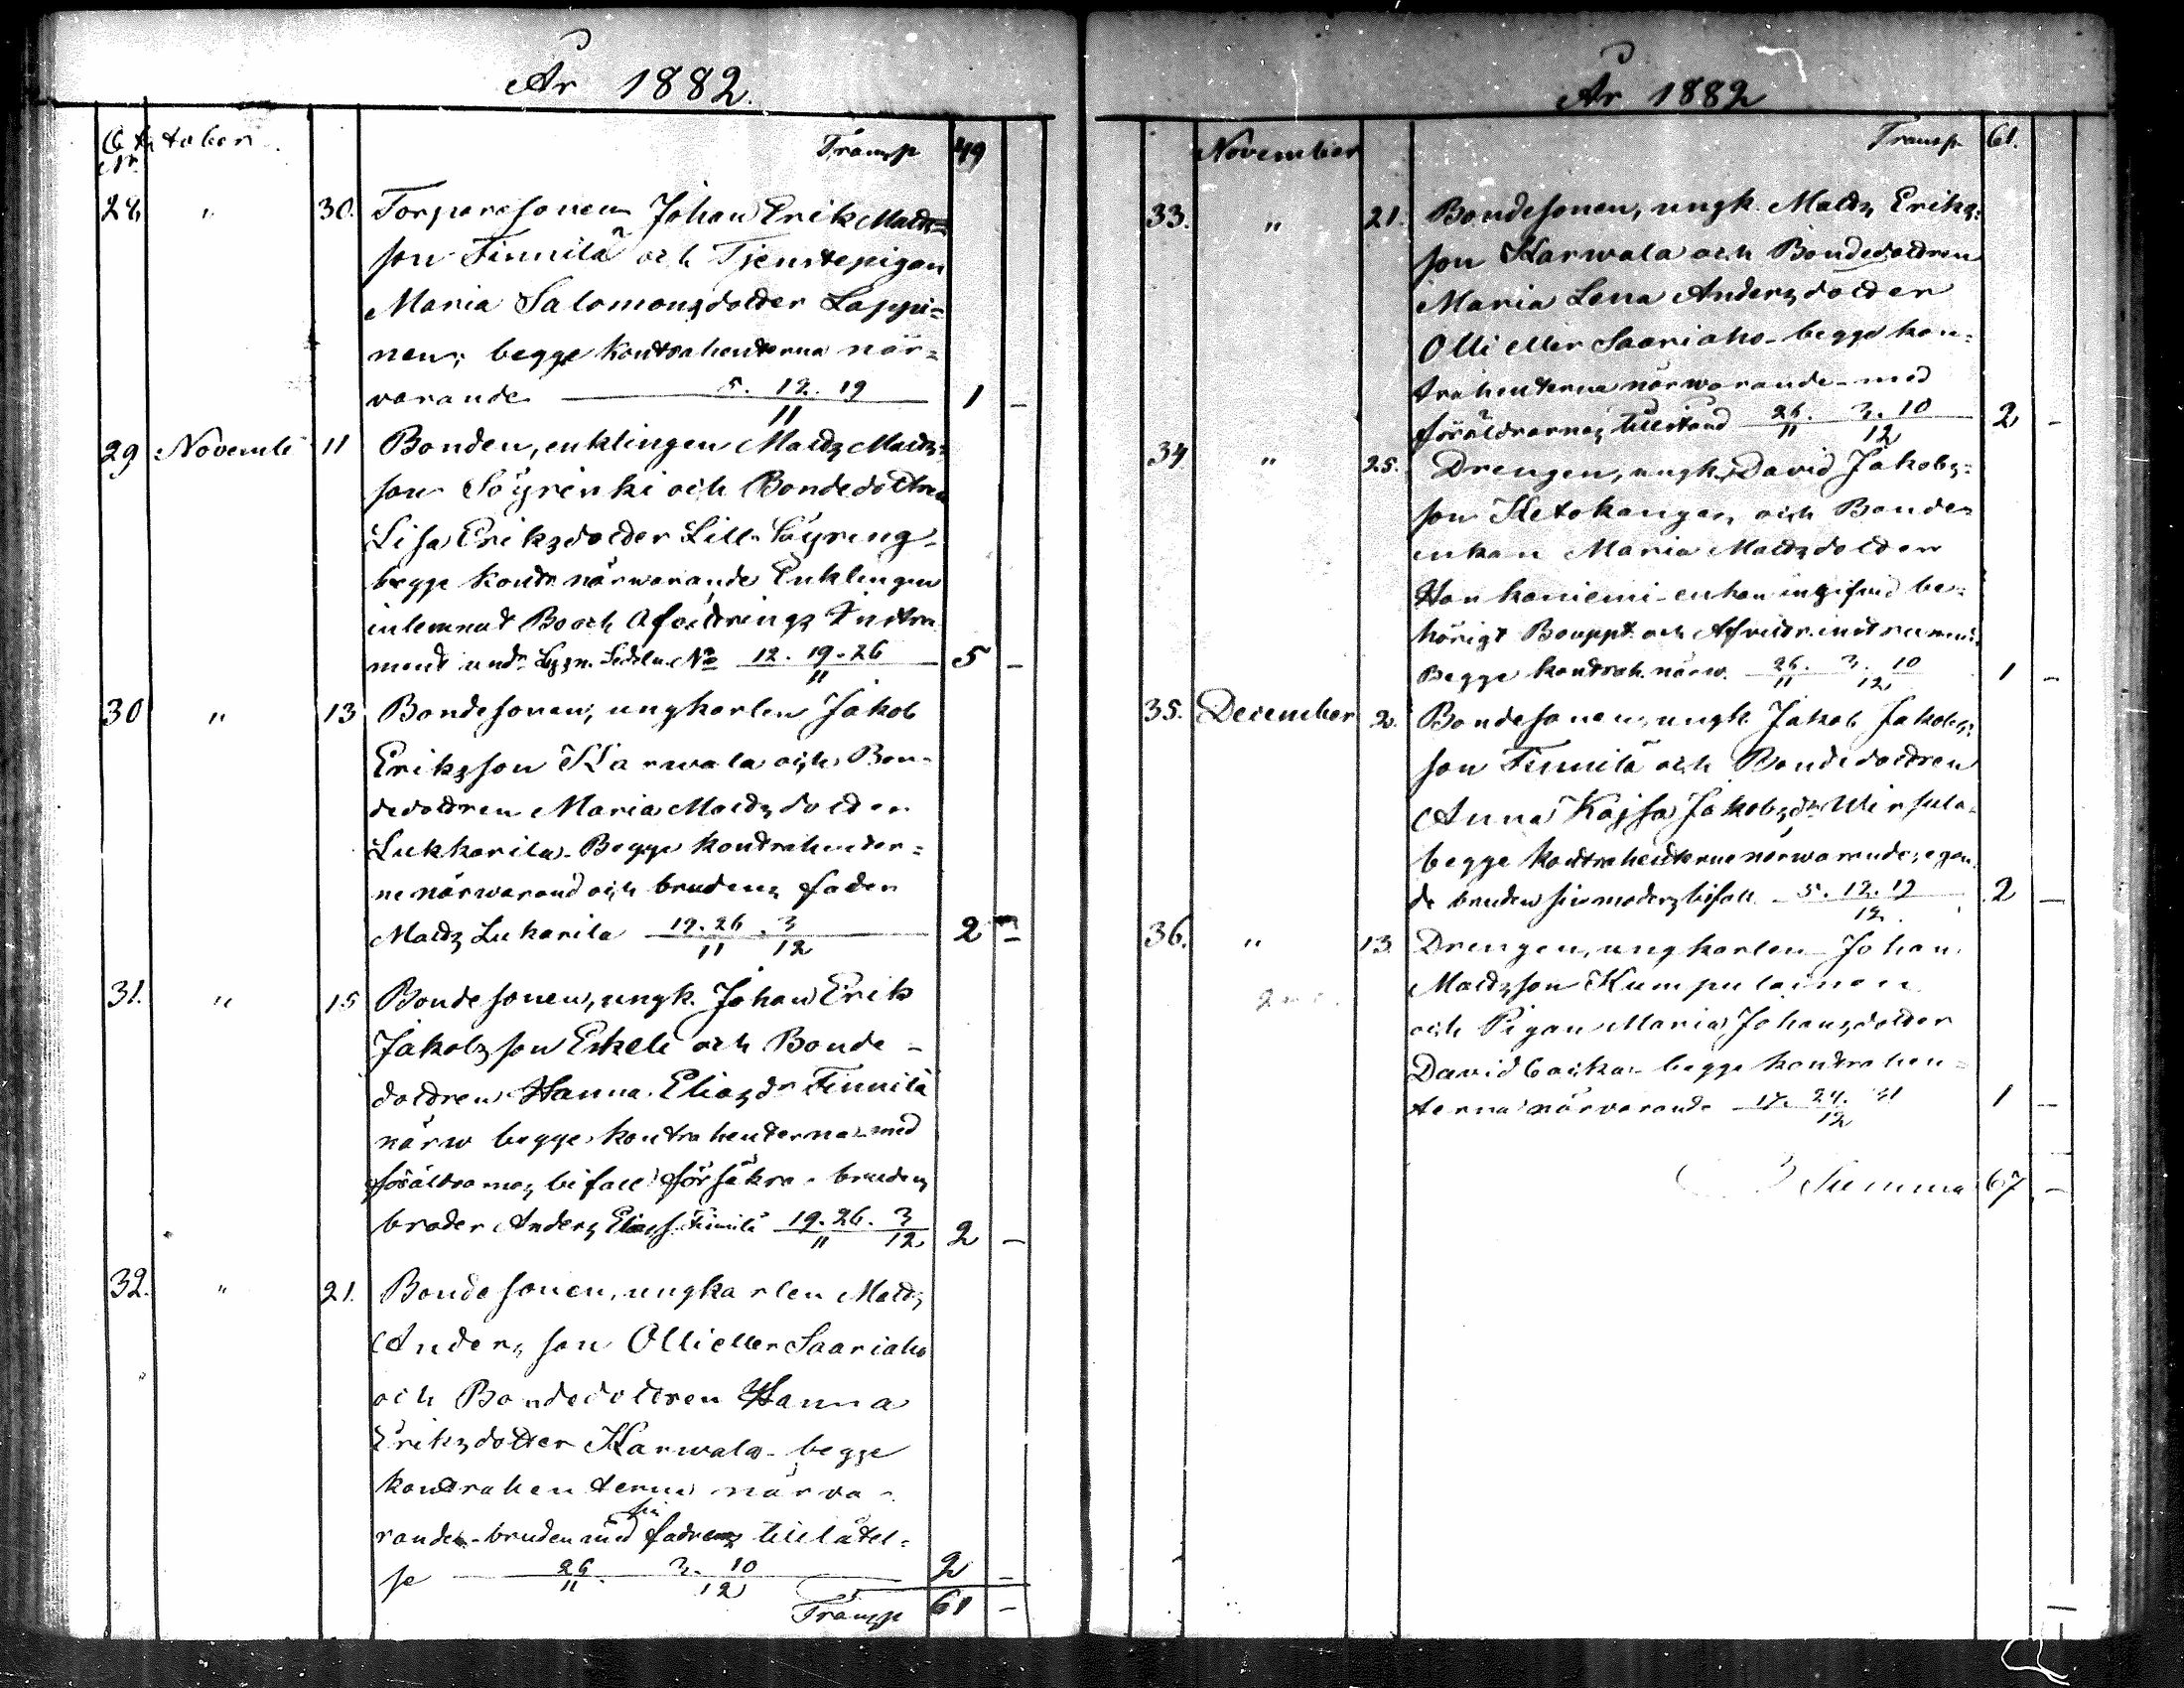 År 1882.
Oktober Transp 49
No
28 " 30. Torparesonen Johan Erik Matts=
son Finnilä och Tjenstepigan
Maria Salomonsdotter Lappi=
nen; begge kontrahenterna när=
varande 5. 12. 19 1 –
11
29 Novemb 11 Bonden, enklingen Matts Matts=
son Söyrinki och Bondedottren
Lisa Eriksdotter Lill-Söyring-
begge kontr närwarande Enklingen
inlemnat Bo och Afvittrings Instru
ment und. Lysn. Sedeln No 12. 19. 26 5 –
11
30 " 13 Bondesonen, ungkarlen Jakob
Eriksson Karwala och Bon-
dedottren Maria Mattsdotter
Lukkarila. Begge kontrahenter=
ne närwarand och brudens fader
Matts Lukarila 19. 26 . 3 2 –
11 12
31. " 15 Bondesonen, ungk. Johan Erik
Jakobsson Eskeli och Bonde-
dottren Hanna Eliasdr Finnilä
närw begge kontrahenterna med
föräldrarnas bifall försäkra brudens
broder Anders Eliass. Finnilä 19. 26. 3 2 –
11 12
32. " 21. Bondesonen, ungkarlen Matts
Andersson Olli eller Saariaho
och Bondedottren Hanna
Eriksdotter Karwala begge
kontrahenterna närva-
sin
rande - bruden med fadrens tillåtel=
se 26. 3. 10 2 –
11 12
Transp 61 –
År 1882
November Transp. 61.
33. " 21. Bondesonen, ungk. Matts Eriks=
son Karwala och Bondedottren
Maria Lena Andersdotter
Olli eller Saariaho - begge kon=
trahenterna närwarande - med
föräldrarnas tillstånd 26. 3. 10 2 –
11 12
34 " 25. Drengen, ungk. David Jakobs=
son Ketokangas och Bonde
enkan Maria Mattsdotter
Honkaniemi - enkan ingifvid be=
hörigt Bouppt. och Afvittr. instrument
Begge kontrah. närw. 26. 3. 10 1 –
11 12
35. December 2. Bondesonen, ungk Jakob Jakobs=
son Finnilä och Bondedottren
Anna Kajsa Jakobsdr Wirkula-
begge kontrahenterne närwarande, egan
de bruden sin moders bifall 5. 12. 19 2 –
12
36. " 13. Drengen, ungkarlen Johan
Mattsson Kumpulainen
och Pigan Maria Johansdotter
Davidbacka - begge kontrahen=
terna närvarande 17. 24. 31 1 –
12
Summa 67 –